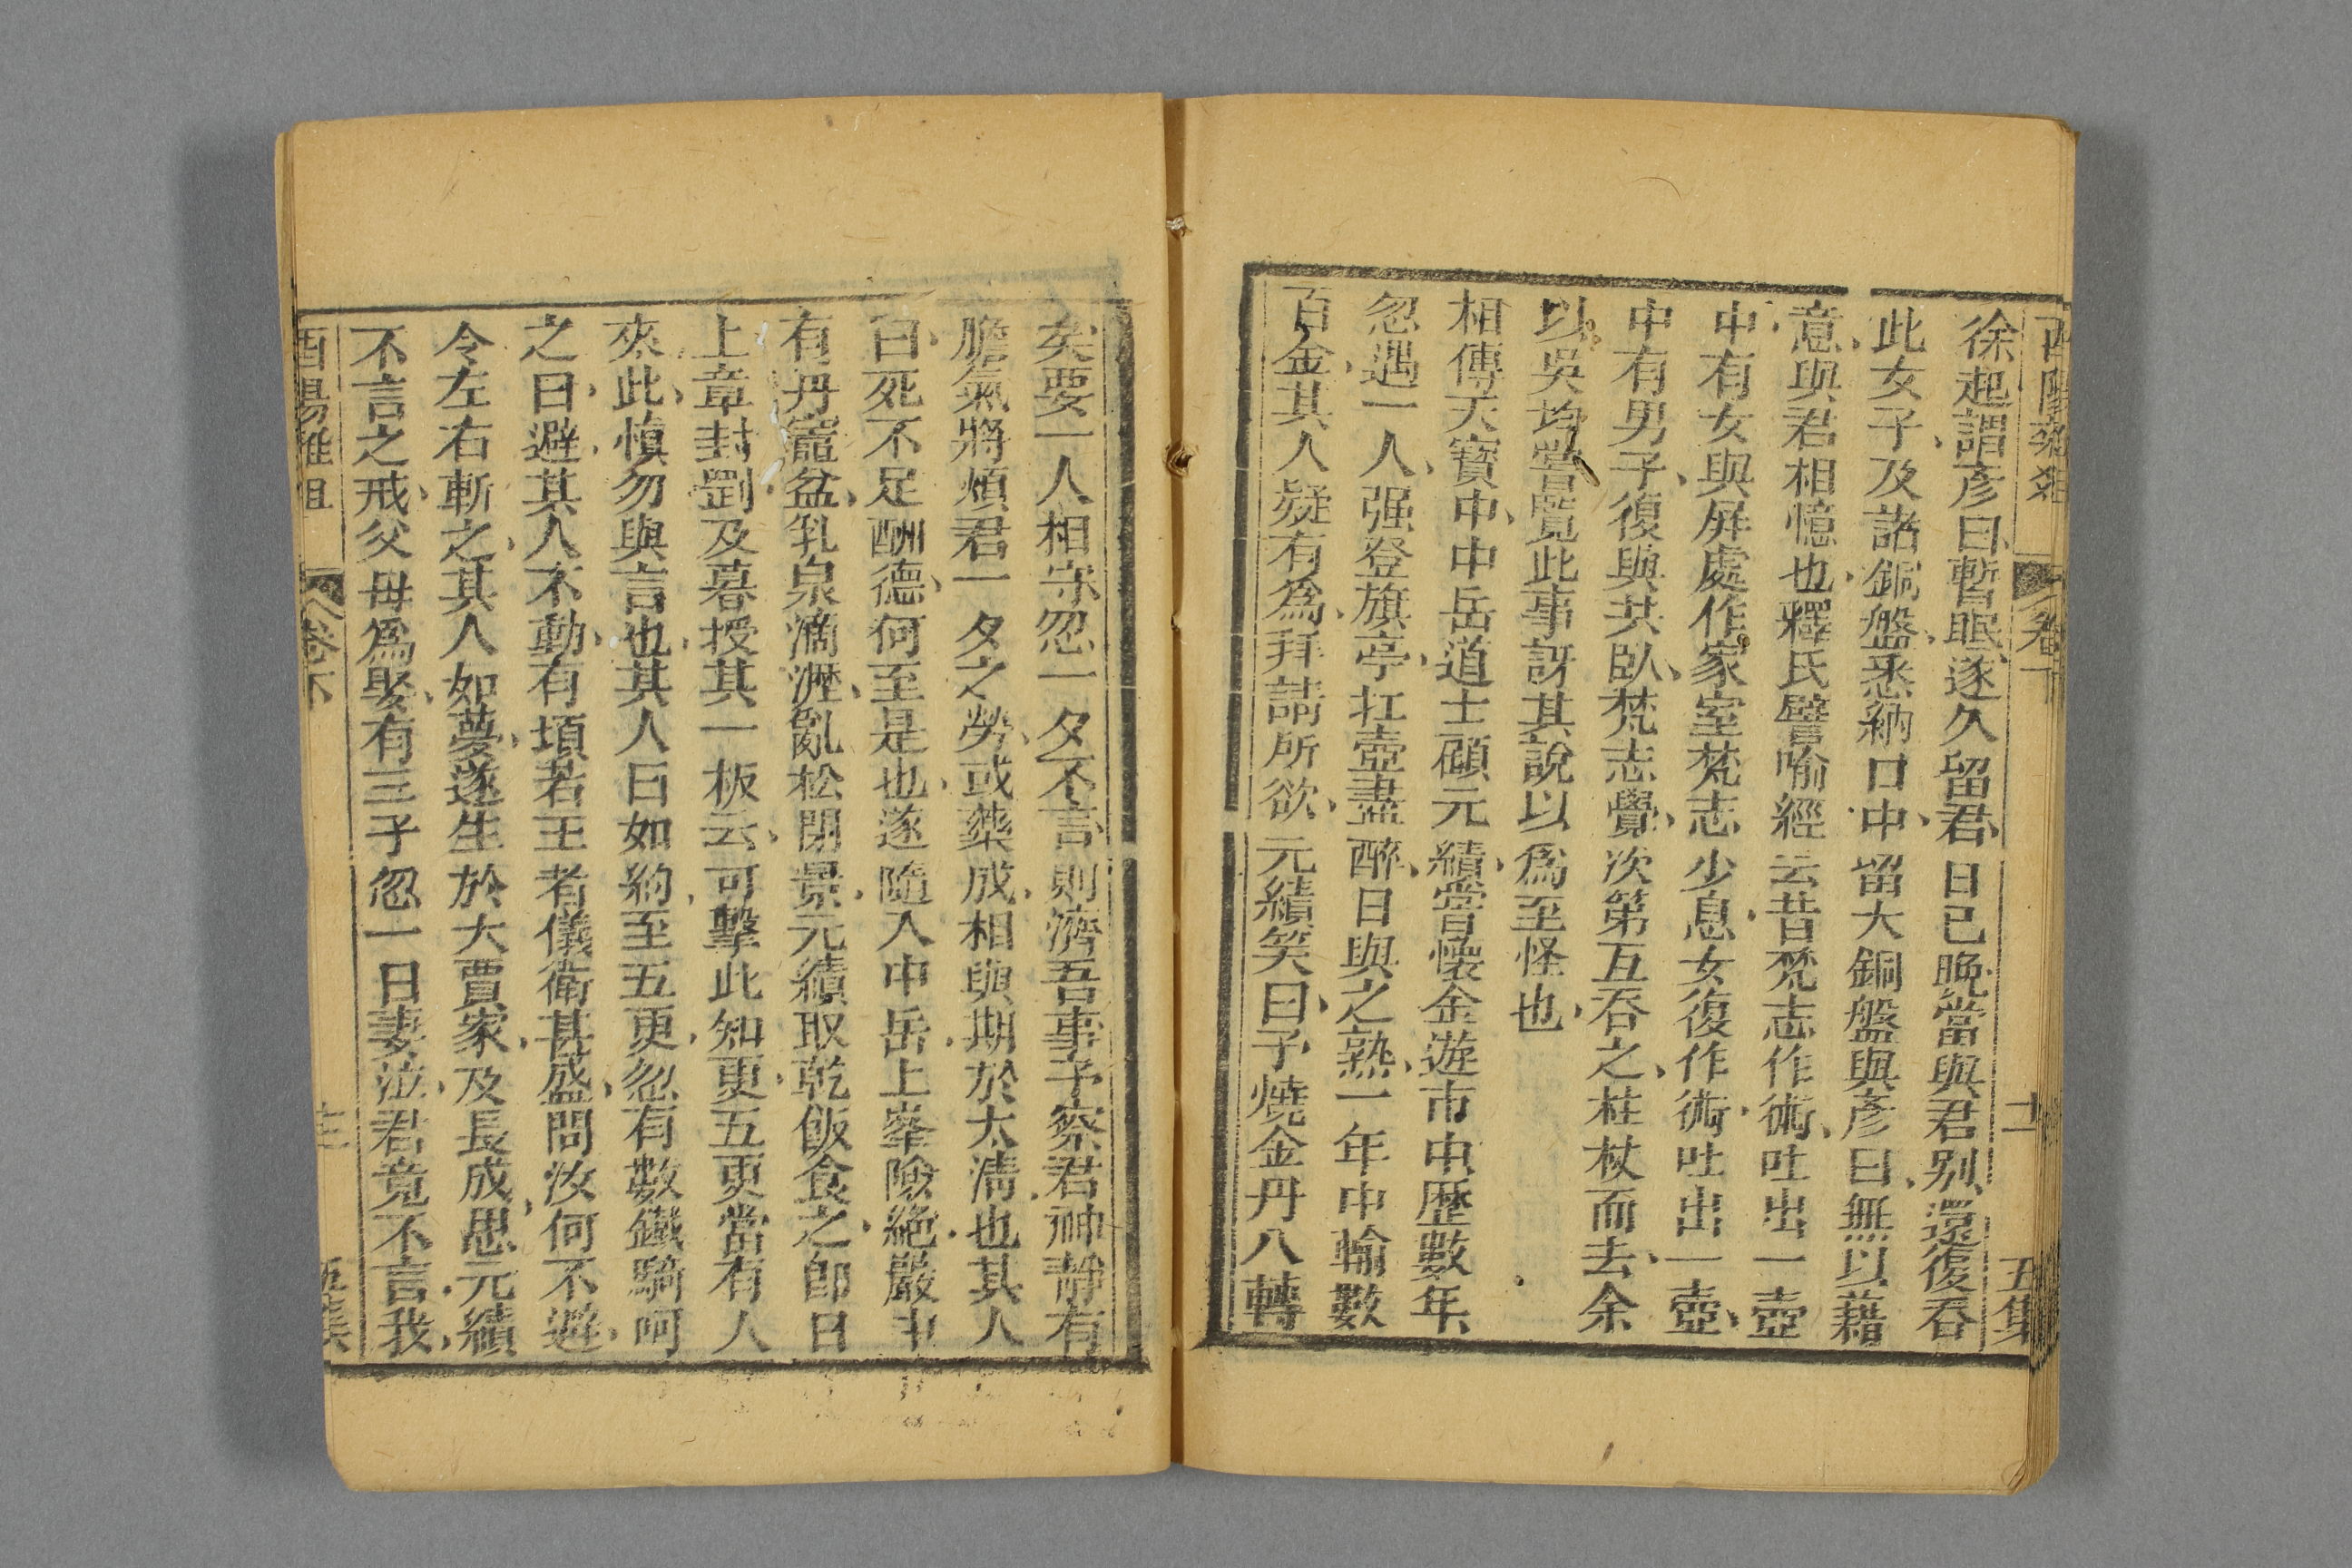 酉陽雜俎 卷下 十二 五集
徐起謂彥曰暫眠遂久留君日已晚當與君别還復吞
此女子及諸銅盤悉納口中留大銅盤與彥曰無以藉
意與君相憶也釋氏譬喻經云昔梵志作術吐出一壺
中有女與屏處作家室梵志少息女復作術吐出一壺
中有男子復與共臥梵志覺次第互吞之柱杖而去余
以吳均嘗覽此事訝其說以為至怪也
相傳天寶中中岳道士顧元績嘗懷金遊市中歷數年
忽遇一人强登旗亭扛壺盡醉日與之熟一年中輸數
百金其人疑有為拜請所欲元績笑曰子燒金丹八轉
矣要一人相守忽一夕不言則濟吾事予察君神靜有
膽氣將煩君一夕之勞或藥成相與期於太清也其人
曰死不足酬德何至是也遂隨入中岳上峯險絶巖中
有丹竈盆乳泉滴瀝亂松閉景元績取乾飯食之卽日
上章封劉及暮授其一板云可擊此知更五更當有人
來此慎勿與言也其人曰如約至五更忽有數鐵騎呵
之曰避其人不動有頃若王者儀衛甚盛問汝何不避
令左右斬之其人如夢遂生於大賈家及長成思元績
不言之戒父母爲娶有三子忽一日妻泣君竟不言我
酉陽雜俎 卷下 十三 五集